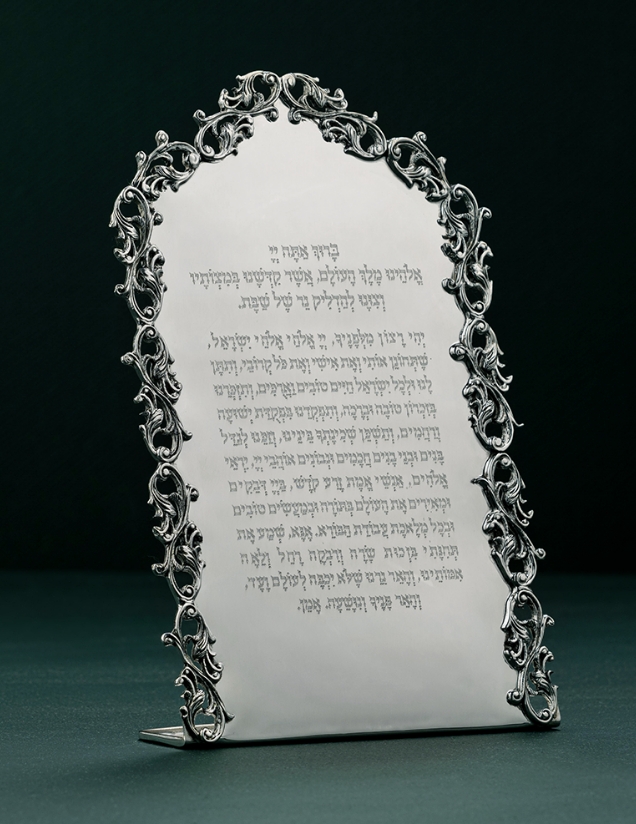 בָּרוּךְ אַתָּה יְיָ
אֱלֹהֵינוּ מֶלֶךְ הָעוֹלָם, אֲשֶׁר קִדְּשָׁנוּ בְּמִצְוֹתָיו
וְצִוָּנוּ לְהַדְלִיק נֵר שֶׁל שַׁבָּת.
יְהִי רָצוֹן מִלְּפָנֶיךָ, יְיָ אֱלֹהַי אֱלֹהֵי יִשְׂרָאֵל,
שֶׁתְּחוֹנֵן אוֹתִי וְאֶת אִישִׁי וְאֶת כֹּל קְרוֹבַי, וְתִתֵּן
לָנוּ וּלְכָל יִשְׂרָאֵל חַיִּים טוֹבִים וַאֲרֻכִּים, וְתִזְכְּרֵנוּ
בְּזִכְרוֹן טוֹבָה וּבְרָכָה, וְתִפְקְדֵנוּ בִּפְקֻדַּת יְשׁוּעָה
וְרַחֲמִים, וְתַשְׁכֵּן שְׁכִינָתְךָ בֵּינֵינוּ, וְזַכֵּנוּ לְגַדֵּל
בָּנִים וּבְנֵי בָנִים חֲכָמִים וּנְבוֹנִים אוֹהֲבֵי יְיָ, יִרְאֵי
אֱלֹהִים, אַנְשֵׁי אֱמֶת זֶרַע קֹדֶשׁ, בַּיְיָ דְּבֵקִים
וּמְאִירִים אֶת הָעוֹלָם בְּתוֹרָה וּבְמַעֲשִׂים טוֹבִים
וּבְכָל מְלֶאכֶת עֲבוֹדַת הַבּוֹרֵא. אָנָּא, שְׁמַע אֶת
תְּחִנָּתִי בִּזְכוּת שָׂרָה וְרִבְקָה רָחֵל וְלֵאָה
אִמּוֹתֵינוּ, וְהָאֵר נֵרֵנוּ שֶׁלֹּא יִכְבֶּה לְעוֹלָם וָעֶד,
וְהָאֵר פָּנֶיךָ וְנִוָּשֵׁעָה. אָמֵן.